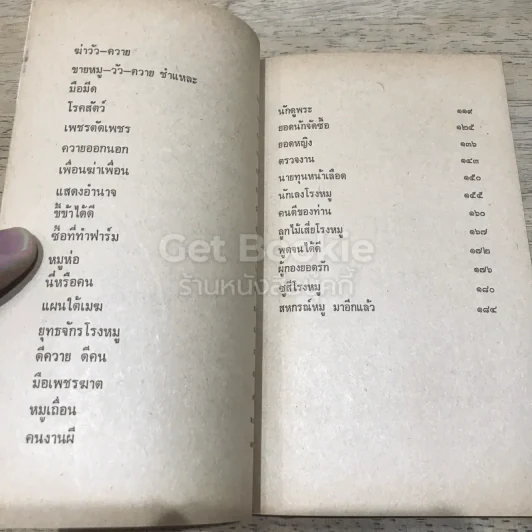 ฆ่าวัว-ควาย
ขายหมู-วัว-ควาย ชำแหละ
มือมีด
โรคสัตว์
เพชรตัดเพชร
ควายออกนอก
เพื่อนฆ่าเพื่อน
แสดงอำนาจ
ขี้ข้าได้ดี
ซื้อที่ทำฟาร์ม
หมูห่อ
นี่หรือคน
แผนใต้เมฆ
ยุทธจักรโรงหมู
ตีควาย ตีคน
มือเพชรฆาต
หมูเถื่อน
คนงานผี
นักดูพระ ๑๑๙
ยอดนักจัดซื้อ ๑๒๕
ยอดหญิง ๑๓๖
ตรวจงาน ๑๔๓
นายทุนหน้าเลือด ๑๕๐
นักเลงโรงหมู ๑๕๕
คนดีของท่าน ๑๖๐
ลูกไม้เสี่ยโรงหมู ๑๖๗
พูดจนได้ดี ๑๗๒
ผู้กองยอดรัก ๑๗๖
ซูสีโรงหมู ๑๘๐
สหกรณ์หมู มาอีกแล้ว ๑๘๔
Get Bookie